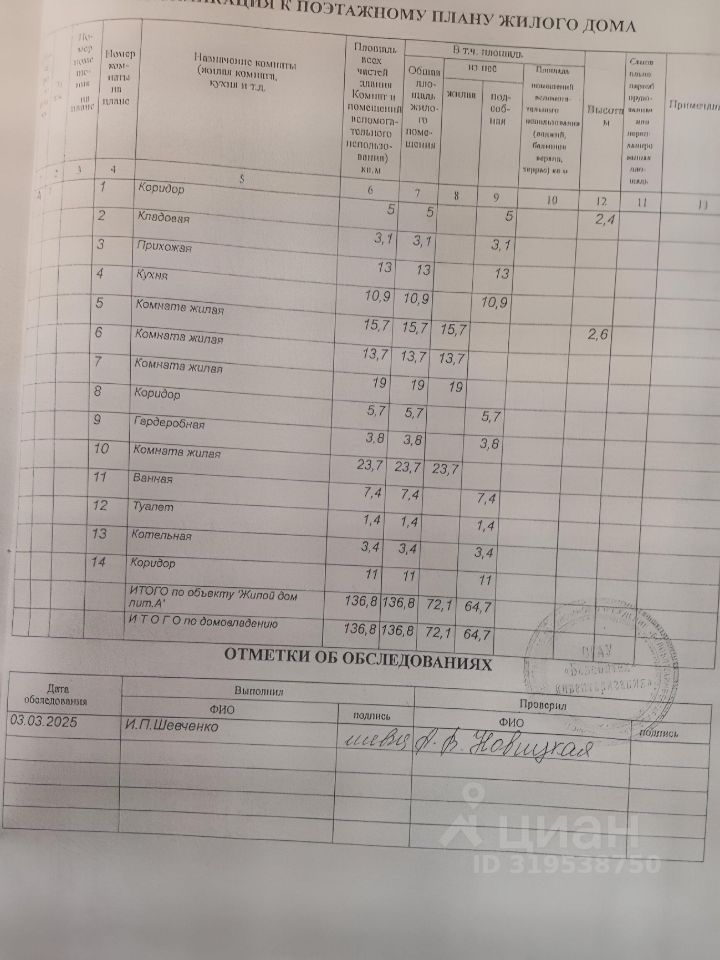 К ПОЭТАЖНОМУ ПЛАНУ ЖИЛОГО ДОМА
Номер комнаты на плане
Назначение комнаты (жилая комната, кухня и т.д.
Площадь всех частей здания Комнат и помещений вспомогательного использования) кв.м
В т.ч. площадь
Общая площадь жилого помещения
из неё
жилая
подсобная
Площадь помещений вспомогательного использования (лоджий, балконов веранд, террас) кв.м
Высота м
Примечани
2 3 4 5 6 7 8 9 10 12 11 13
1 Коридор 5 5 5 2,4
2 Кладовая 3,1 3,1 3,1
3 Прихожая 13 13 13
4 Кухня 10,9 10,9 10,9
5 Комната жилая 15,7 15,7 15,7 2,6
6 Комната жилая 13,7 13,7 13,7
7 Комната жилая 19 19 19
8 Коридор 5,7 5,7 5,7
9 Гардеробная 3,8 3,8 3,8
10 Комната жилая 23,7 23,7 23,7
11 Ванная 7,4 7,4 7,4
12 Туалет 1,4 1,4 1,4
13 Котельная 3,4 3,4 3,4
14 Коридор 11 11 11
ИТОГО по объекту 'Жилой дом лит.А' 136,8 136,8 72,1 64,7
И Т О Г О по домовладению 136,8 136,8 72,1 64,7
ОТМЕТКИ ОБ ОБСЛЕДОВАНИЯХ
Дата обследования
Выполнил
Проверил
ФИО подпись ФИО подпись
03.03.2025 И.П.Шевченко А.В. Новицкая
циан
ID 319538750